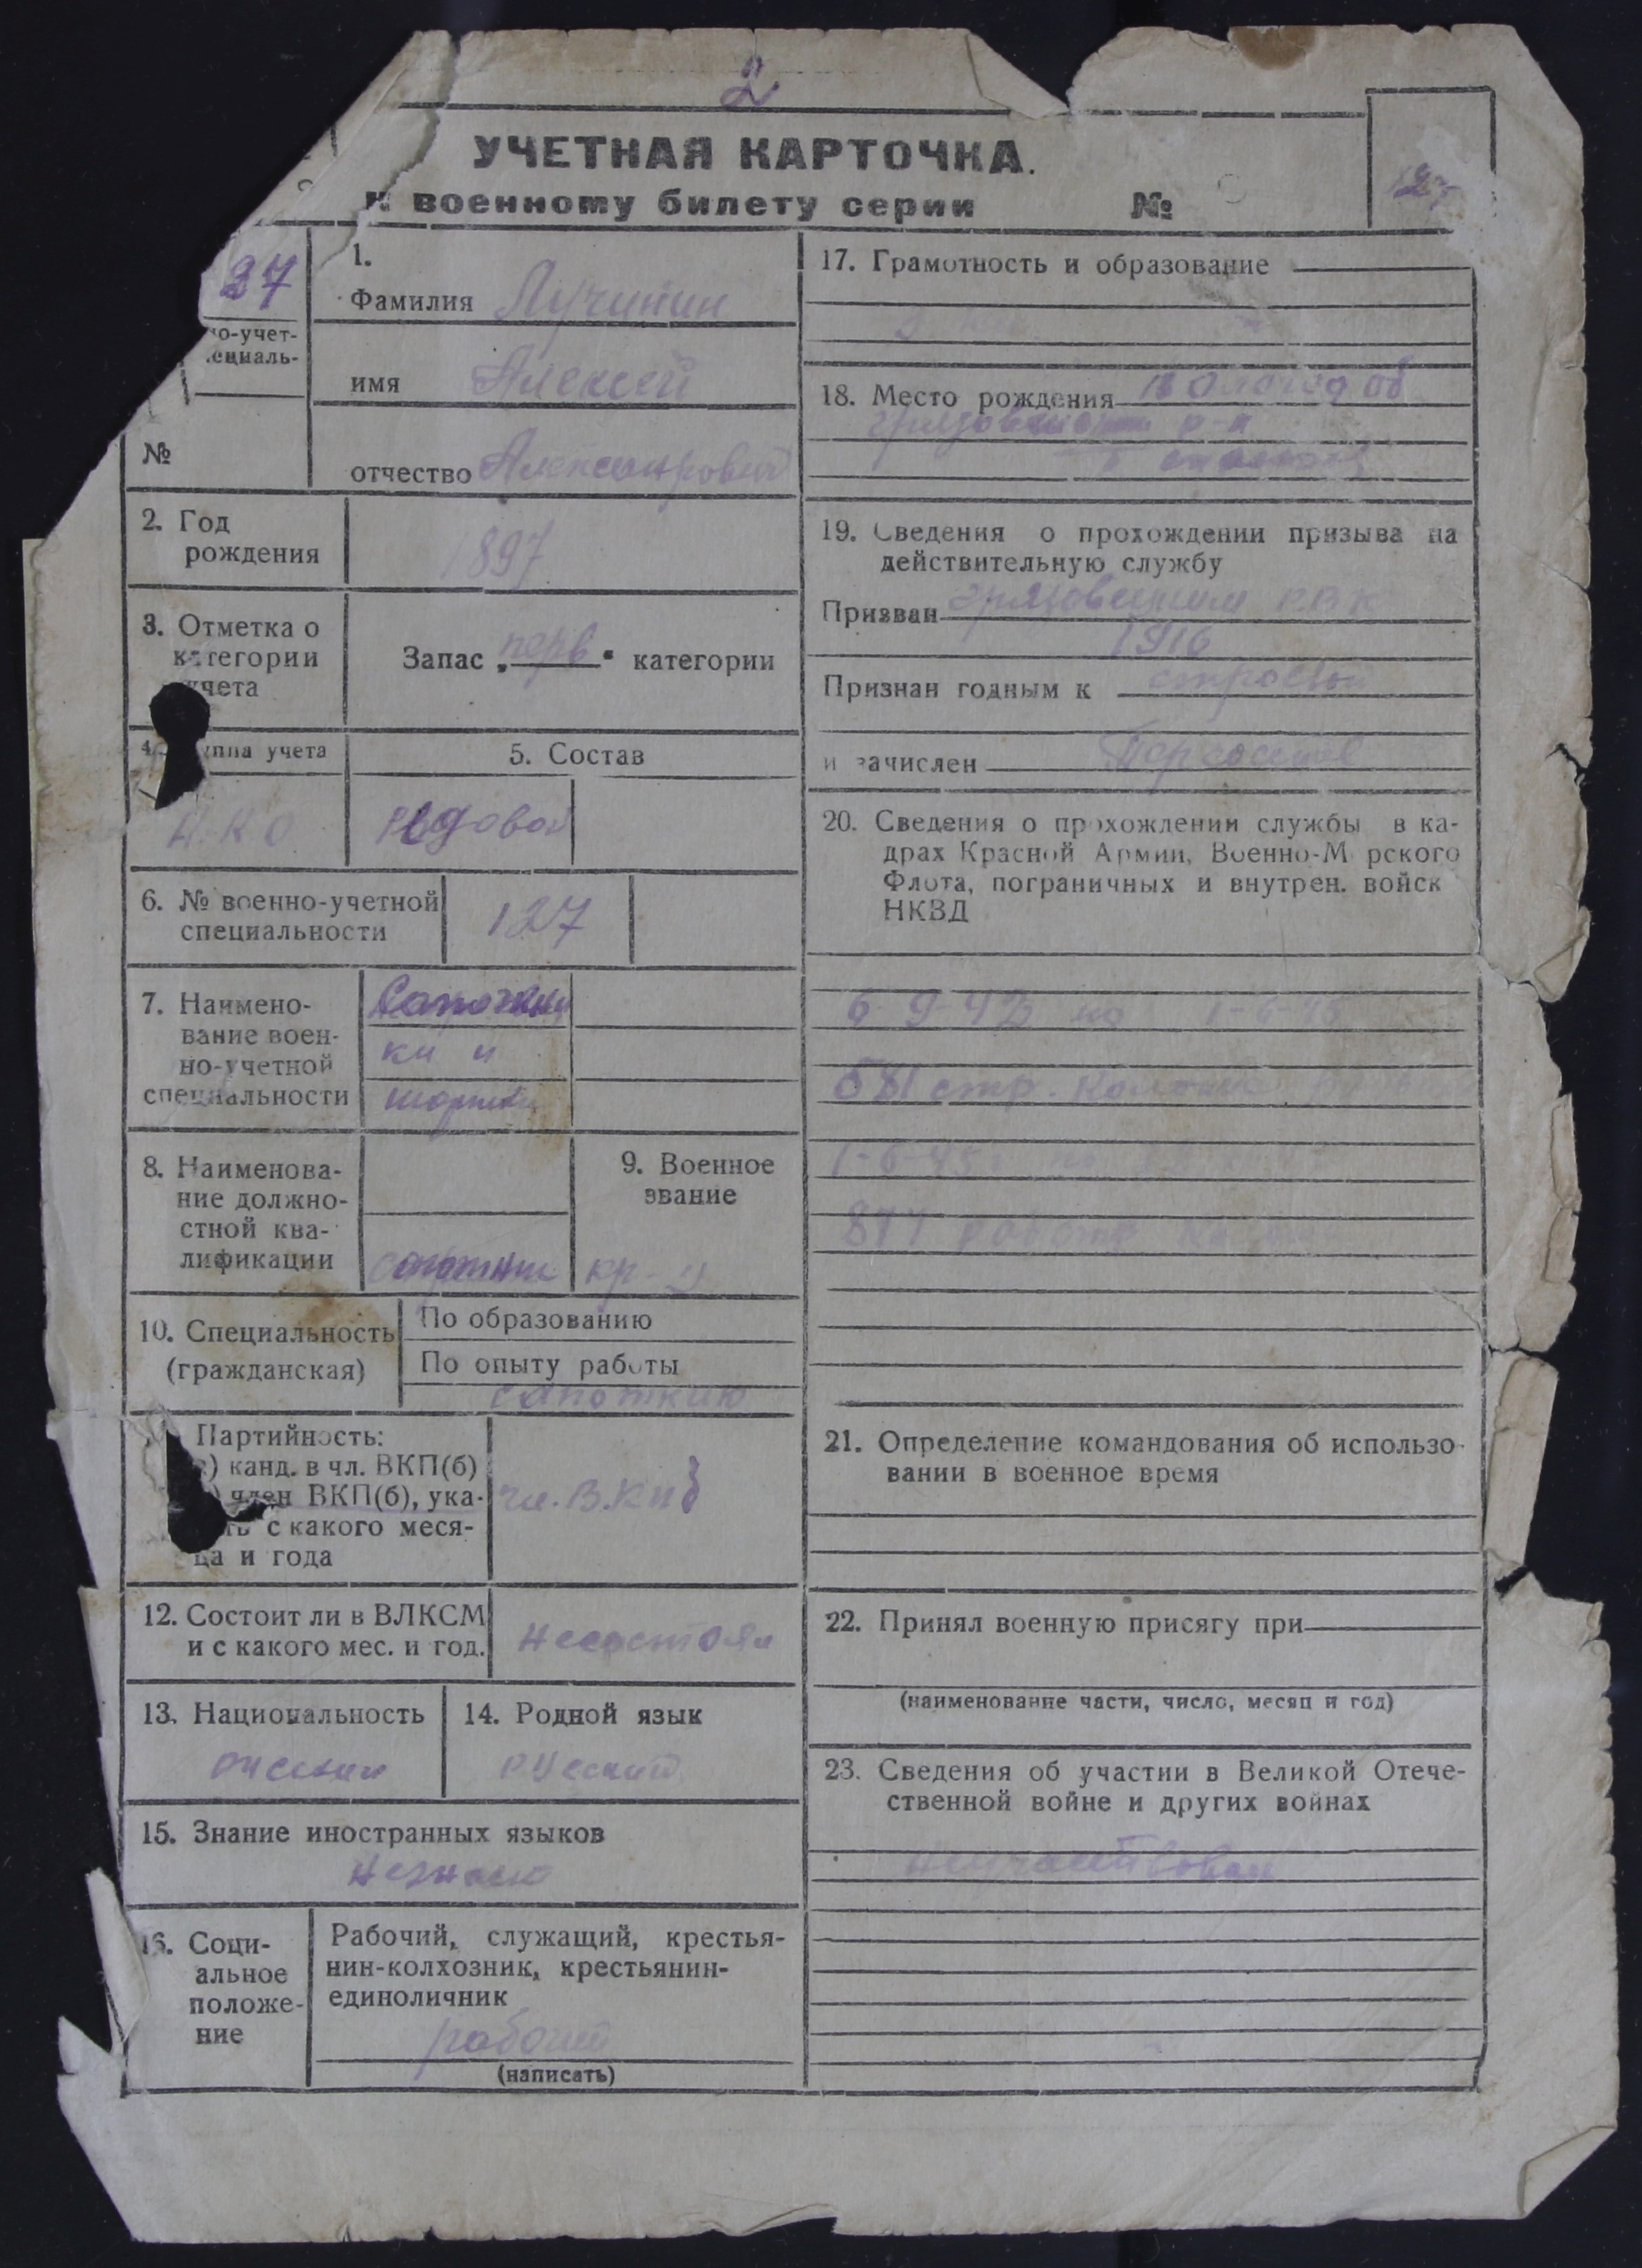 2
УЧЕТНАЯ КАРТОЧКА.
к военному билету серии №
127
37
о-учет-
специаль-
№
1.
Фамилия Лучинин
имя Алексей
отчество Александрович
2. Год
рождения
1897
3. Отметка о
категории
учета
Запас „перв“ категории
4. уппа учета
Н.К.О.
5. Состав
Рядовой
6. № военно-учетной
специальности
127
7. Наимено-
вание воен-
но-учетной
специальности
Сапожни
ки и
шорники
8. Наименова-
ние должно-
стной ква-
лификации
сапожник
9. Военное
звание
кр-ц
10. Специальность
(гражданская)
По образованию
По опыту работы
сапожник
Партийность:
) канд. в чл. ВКП(б)
) член ВКП(б), ука-
ть с какого меся-
ца и года
чл. В.К.П.б
12. Состоит ли в ВЛКСМ
и с какого мес. и год.
не состоял
13. Национальность
русский
14. Родной язык
русский
15. Знание иностранных языков
не знаю
16. Соци-
альное
положе-
ние
Рабочий, служащий, крестья-
нин-колхозник, крестьянин-
единоличник
рабочий
(написать)
17. Грамотность и образование
18. Место рождения Вологод об
Грязовецкий р-н
19. Сведения о прохождении призыва на
действительную службу
Призван Грязовецким РВК
1916
Признан годным к строевой
и зачислен
20. Сведения о прохождении службы в ка-
драх Красной Армии, Военно-М рского
Флота, пограничных и внутрен. войск
НКВД
6-9-42 по 1-6-45
581 стр.
1-6-45
877
21. Определение командования об использо-
вании в военное время
22. Принял военную присягу при
(наименование части, число, месяц и год)
23. Сведения об участии в Великой Отече-
ственной войне и других войнах
не участвовал